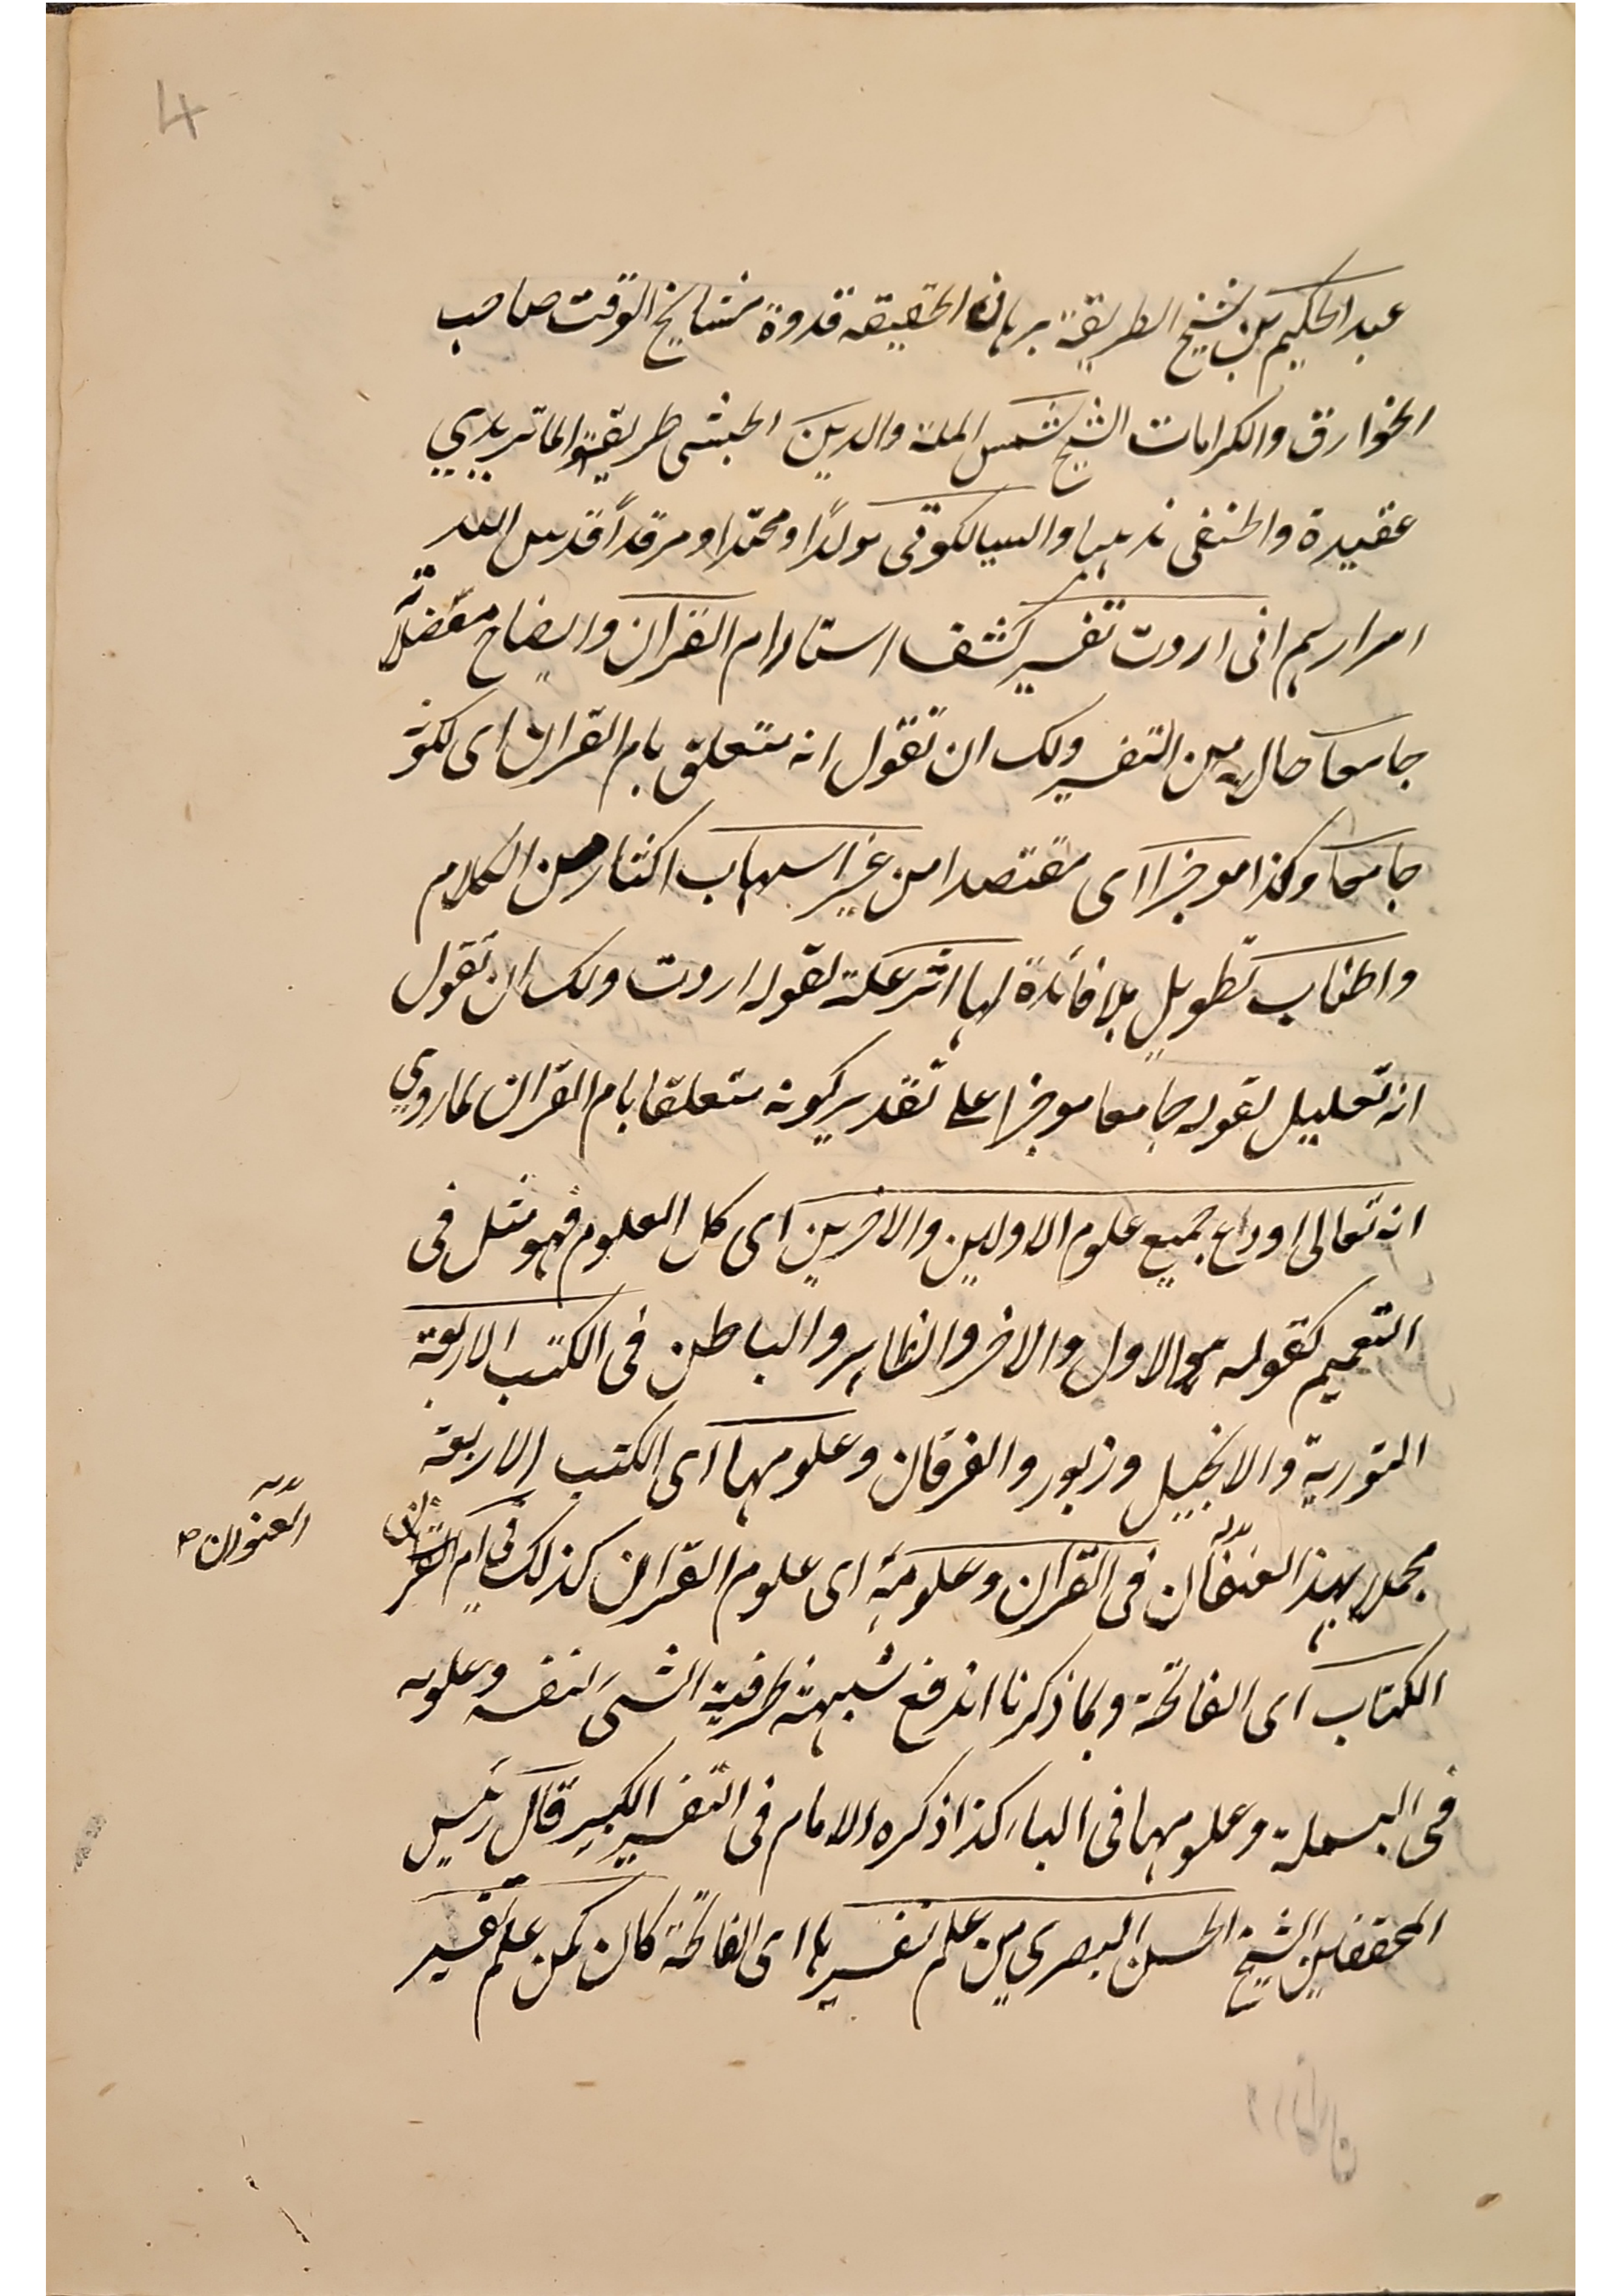 4
عبد الحكيم بن شيخ الطريقة برهان الحقيقه قدوة مشايخ الوقت صاحب
الخوارق والكرامات الشيخ شمس الملة والدين الچشتى طريقة والماتريدي
عقيدة والحنفى مذهبا والسيالكوتى مولدًا ومحتدا ومرقدًا قدس الله
اسرارهم انى اردت تفسير كشف استار ام القران وايضاح معضلاته
جامعا حال من التفسير ولك ان تقول انه متعلق بام القران اى لكونه
جامعا وكذا موجزا اى مقتصدا من غير اسهاب اكثار من الكلام
واطناب تطويل بلا فائدة لها اثر علة لقوله اردت ولك ان تقول
انه تعليل لقوله جامعا موجزا على تقدير كونه متعلقا بام القران لما روي
انه تعالى اوداع جميع علوم الاولين والاخرين اى كل العلوم فهو مثل فى
التعميم كقوله هو الاول والاخر والظاهر والباطن فى الكتب الاربعة
التورية والانجيل وزبور والفرقان وعلومها اى الكتب الاربعة
مجملا بهذا فى القران وعلومه اى علوم القران كذلك فى ام القران
العنوان صـ
الكتاب اى الفاتحة وبما ذكرنا اندفع شبهة ظرفية الشىء لنفسه وعلومه
فى البسملة وعلومها فى الباء كذا ذكره الامام فى التفسير الكبير قال رئيس
المحققين الشيخ الحسن البصري من علم تفسيرها اى الفاتحة كان كمن علم تفسير